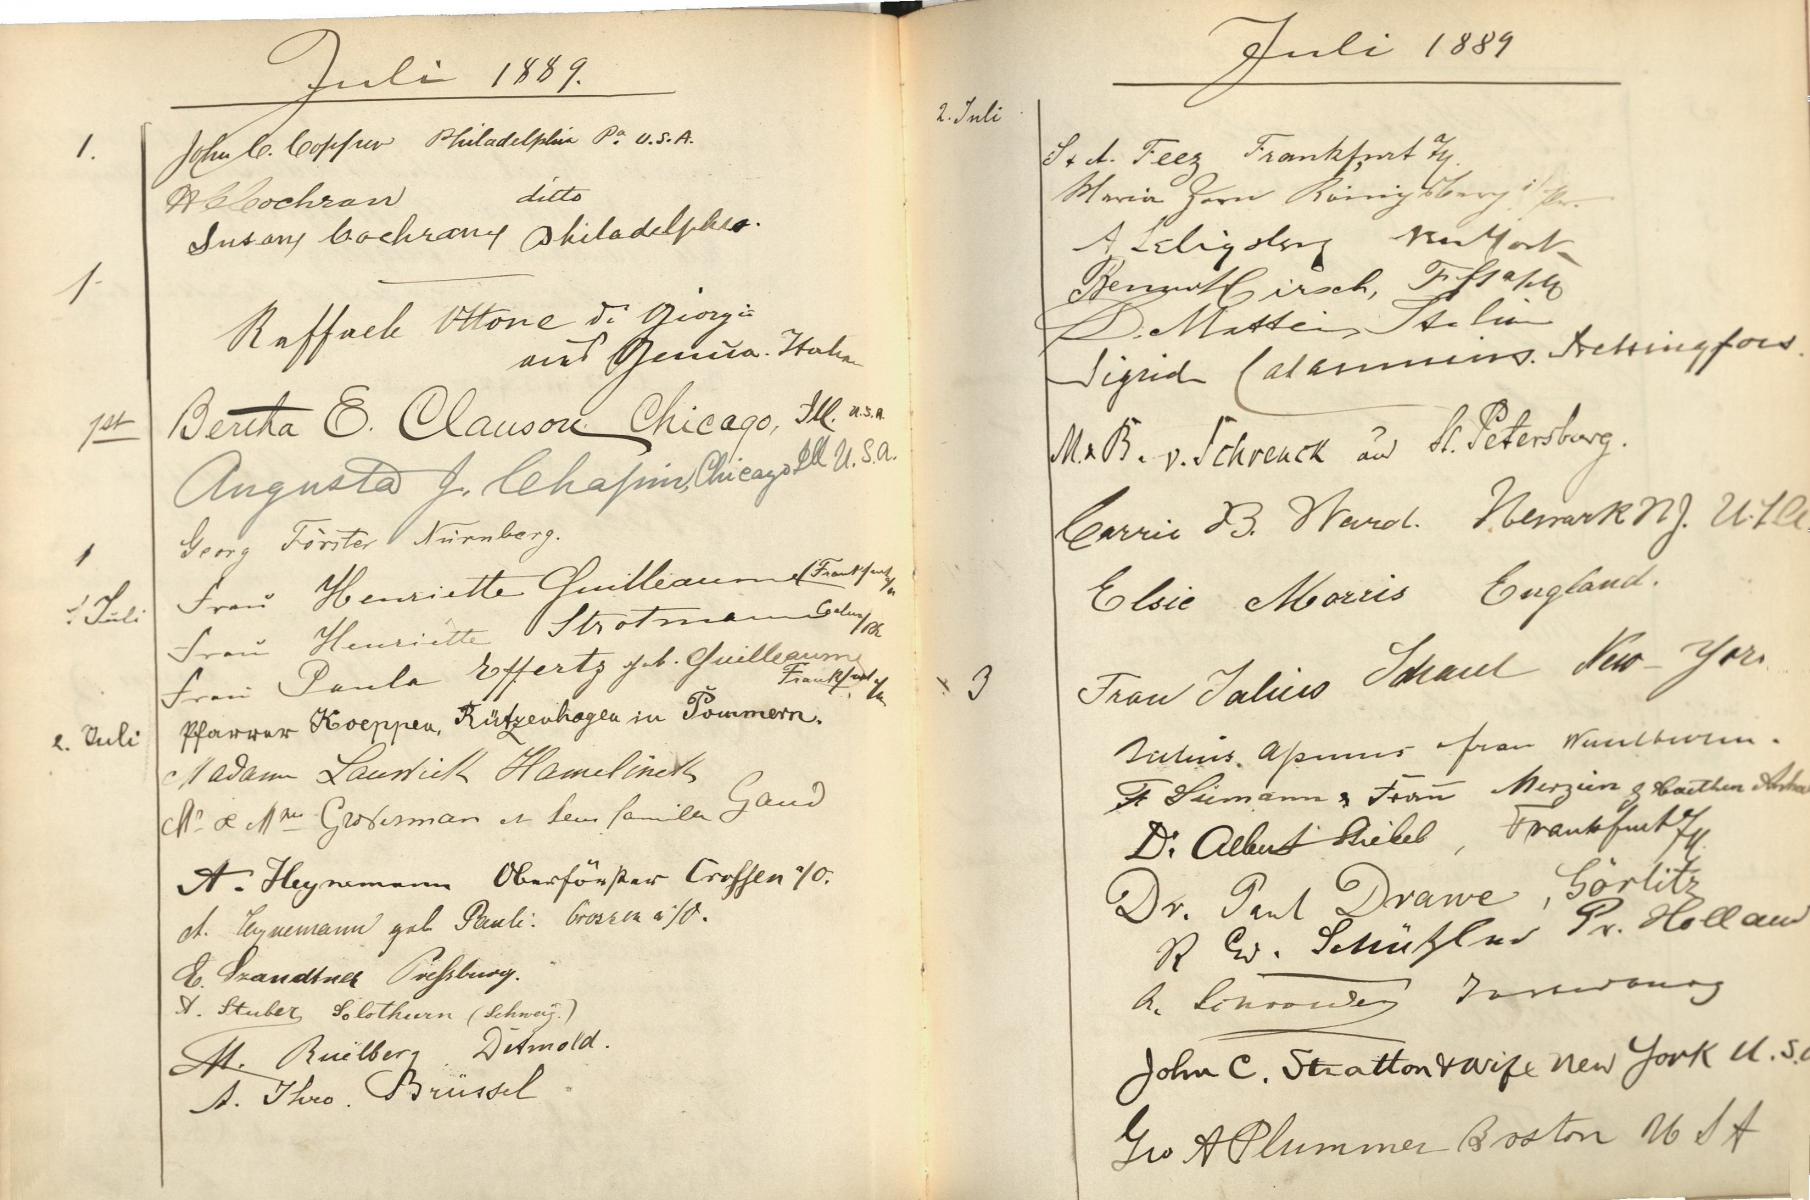 Juli 1889.
1. John C. Philadelphia Pa. U.S.A.
Cochran ditto
Susan Cochran Philadelphia.
1.
Raffaele Ottone di Giorgio
aus Genua. Italia
1st Bertha E. Clauson Chicago, Ill. U.S.A.
Augusta J. Chapin, Chicago Ill U.S.A.
Georg Förster Nürnberg.
1 Frau Henriette Guilleaume (Frankfurt a/M
1 Juli Frau Henriette Strotmann
Frau Paula Effertz geb. Guilleaume
Frankfurt a/M
2. Juli Pfarrer Koeppen, Rützenhagen in Pommern.
Madame Hamelinck
Mr & Mme et famille Gand
A. Heynemann Oberförster Crossen a/O.
A. Heynemann geb. Pauli. Crossen a/O.
E. Szandtner Pressburg.
A. Stuber Solothurn (Schweiz.)
Detmold.
A. Thro. Brüssel
Juli 1889
2. Juli
S & A. Feez Frankfurt a/M.
Maria Zorn Königsberg i/Pr.
A. Seligsberg New York
Hirsch,
D. Mattei, Italien
Sigrid Calamnius. Helsingfors.
M. & B. v. Schrenck aus St. Petersburg.
Carrie B. Ward. Newark N.J. U.S.A.
Elsie Morris England.
3 Frau Julius New-York
Julius Frau
& Frau Merzien b Coethen
Dr. Albert Stiebel, Frankfurt a/M.
Dr. Paul Drawe, Görlitz
R Pr. Holland
A.
John C. Stratton & wife New York U.S.A
Geo A Plummer Boston U S A